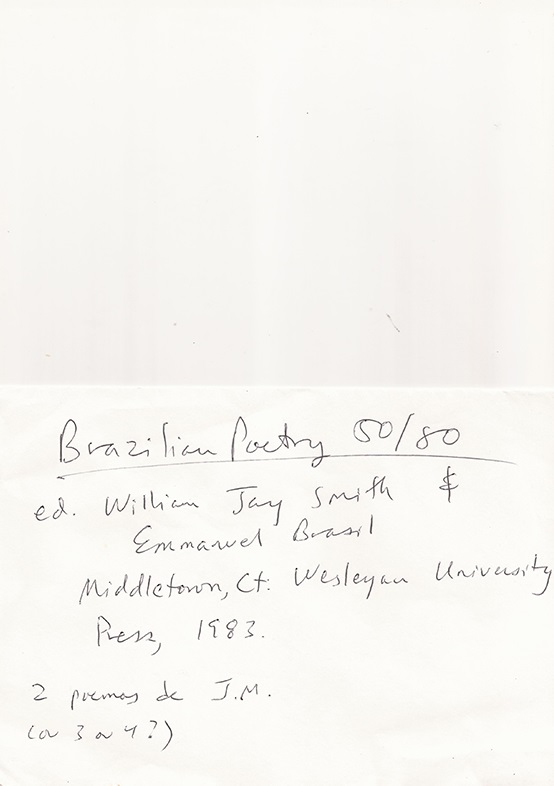 Brazilian Poetry 50/80
ed. William Jay Smith &
Emmanuel Brasil
Middletown, Ct: Wesleyan University
Press, 1983.
2 poemas de J.M.
(or 3 or 4?)